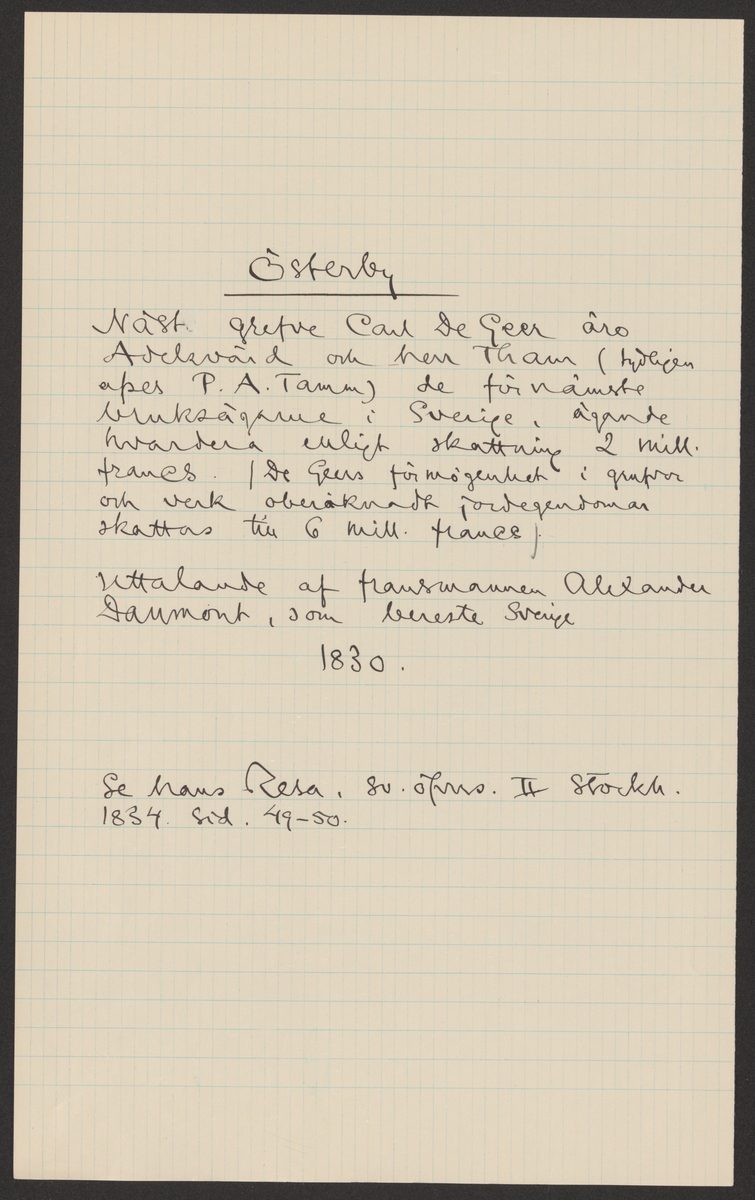 Österby
Näst grefve Carl De Geer äro
Adelsvärd och herr Tham (tydligen
afses P. A. Tamm) de förnämste
bruksägarne i Sverige, ägande
hvardera enligt skattning 2 mill.
francs. (De Geers förmögenhet i grufvor
och verk oberäknadt jordegendomar
skattas till 6 mill. francs).
Uttalande af fransmannen Alexander
Daumont, som bereste Sverige
1830.
Se hans Resa, sv. öfvers. II Stockh.
1834. Sid. 49-50.